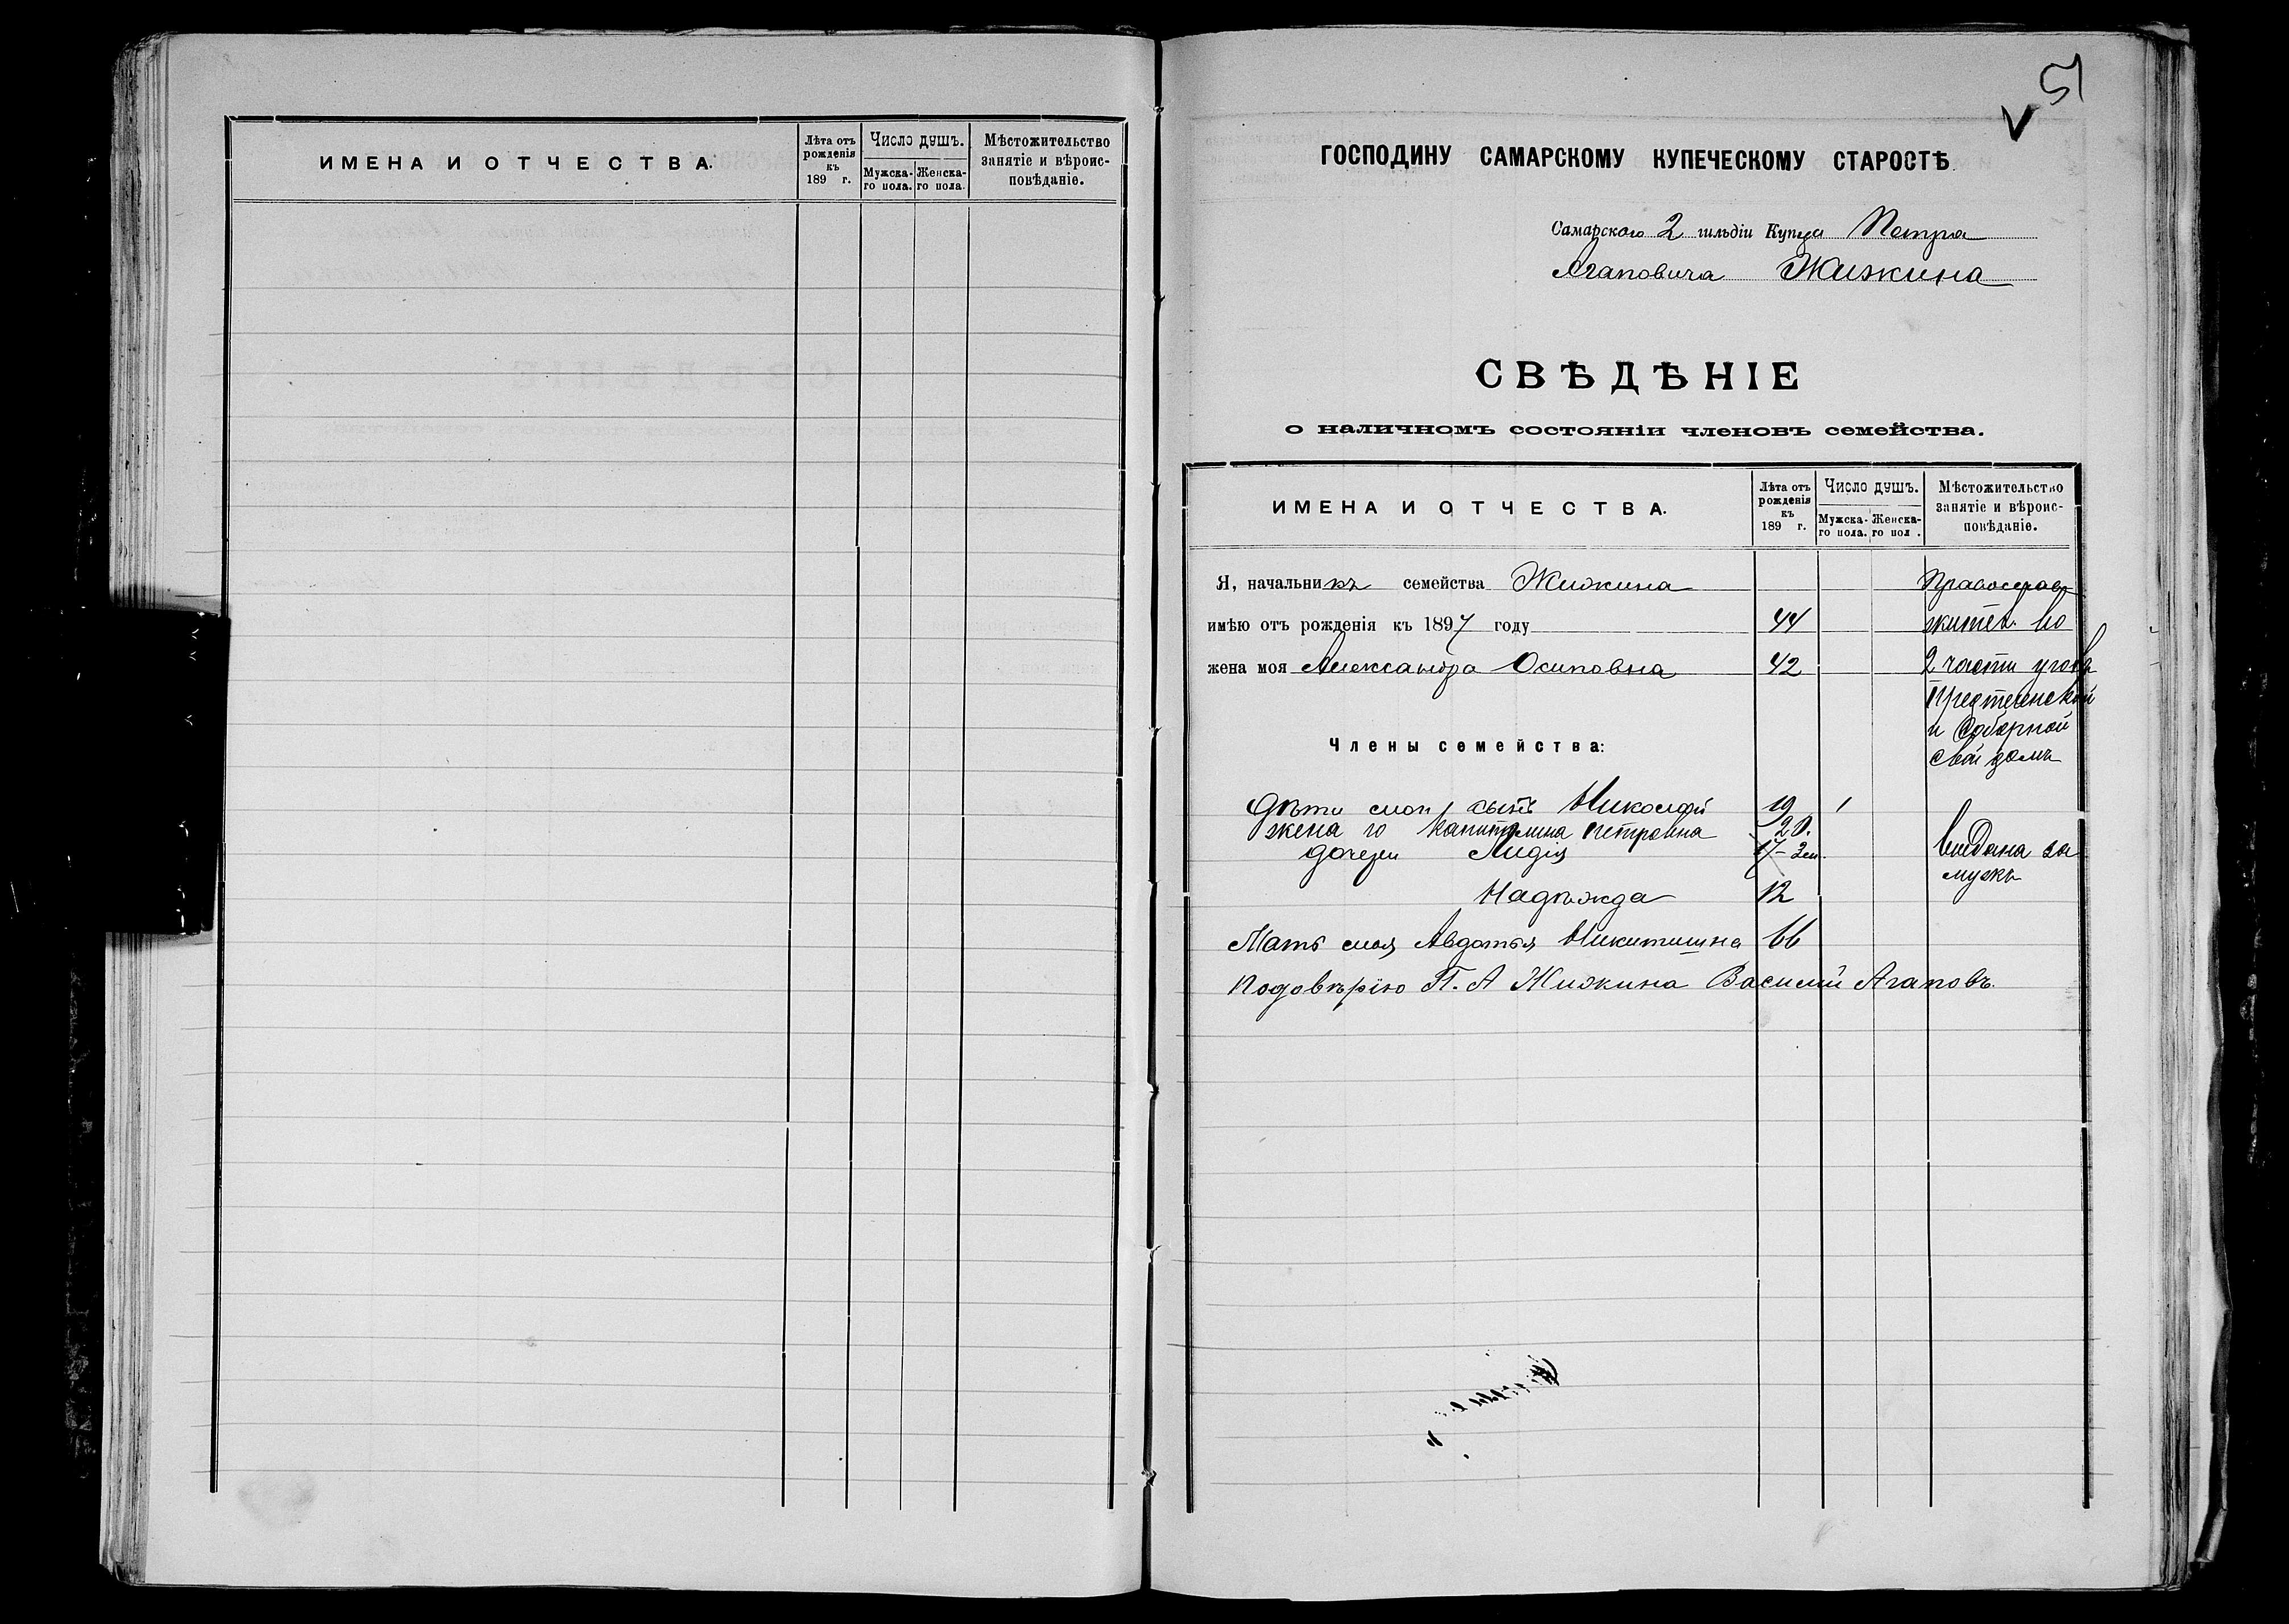 ИМЕНА И ОТЧЕСТВА.
Лѣта отъ рожденія къ 189 г.
Число душъ.
Мужска-го пола.
Женска-го пола.
Мѣстожительство занятіе и вѣроис-повѣданіе.
51
ГОСПОДИНУ САМАРСКОМУ КУПЕЧЕСКОМУ СТАРОСТѢ
Самарского 2 гильдіи Купца Петра
Агаповича Жижкина
СВѢДѢНІЕ
о наличномъ состояніи членовъ семейства.
ИМЕНА И ОТЧЕСТВА.
Лѣта отъ рожденія къ 189 г.
Число душъ.
Мужска-го пола.
Женска-го пол .
Мѣстожительство занятіе и вѣроис-повѣданіе.
Я, начальникъ семейства Жижкина Православ
имѣю отъ рожденія къ 1897 году 44 жител. во
жена моя Александра Осиповна 42 2 части уголъ
Предтеченской
и Соборной
Члены семейства: свой домъ
Дѣти мои сынъ Николай 19 1
жена го Капитолина Петровна 20.
дочери Лидія 17 выдана за
мужъ
Надѣжда 12
Мать моя Авдотья Никитишна 66
Подовѣрію П. А Жижкина Василій Агаповъ.